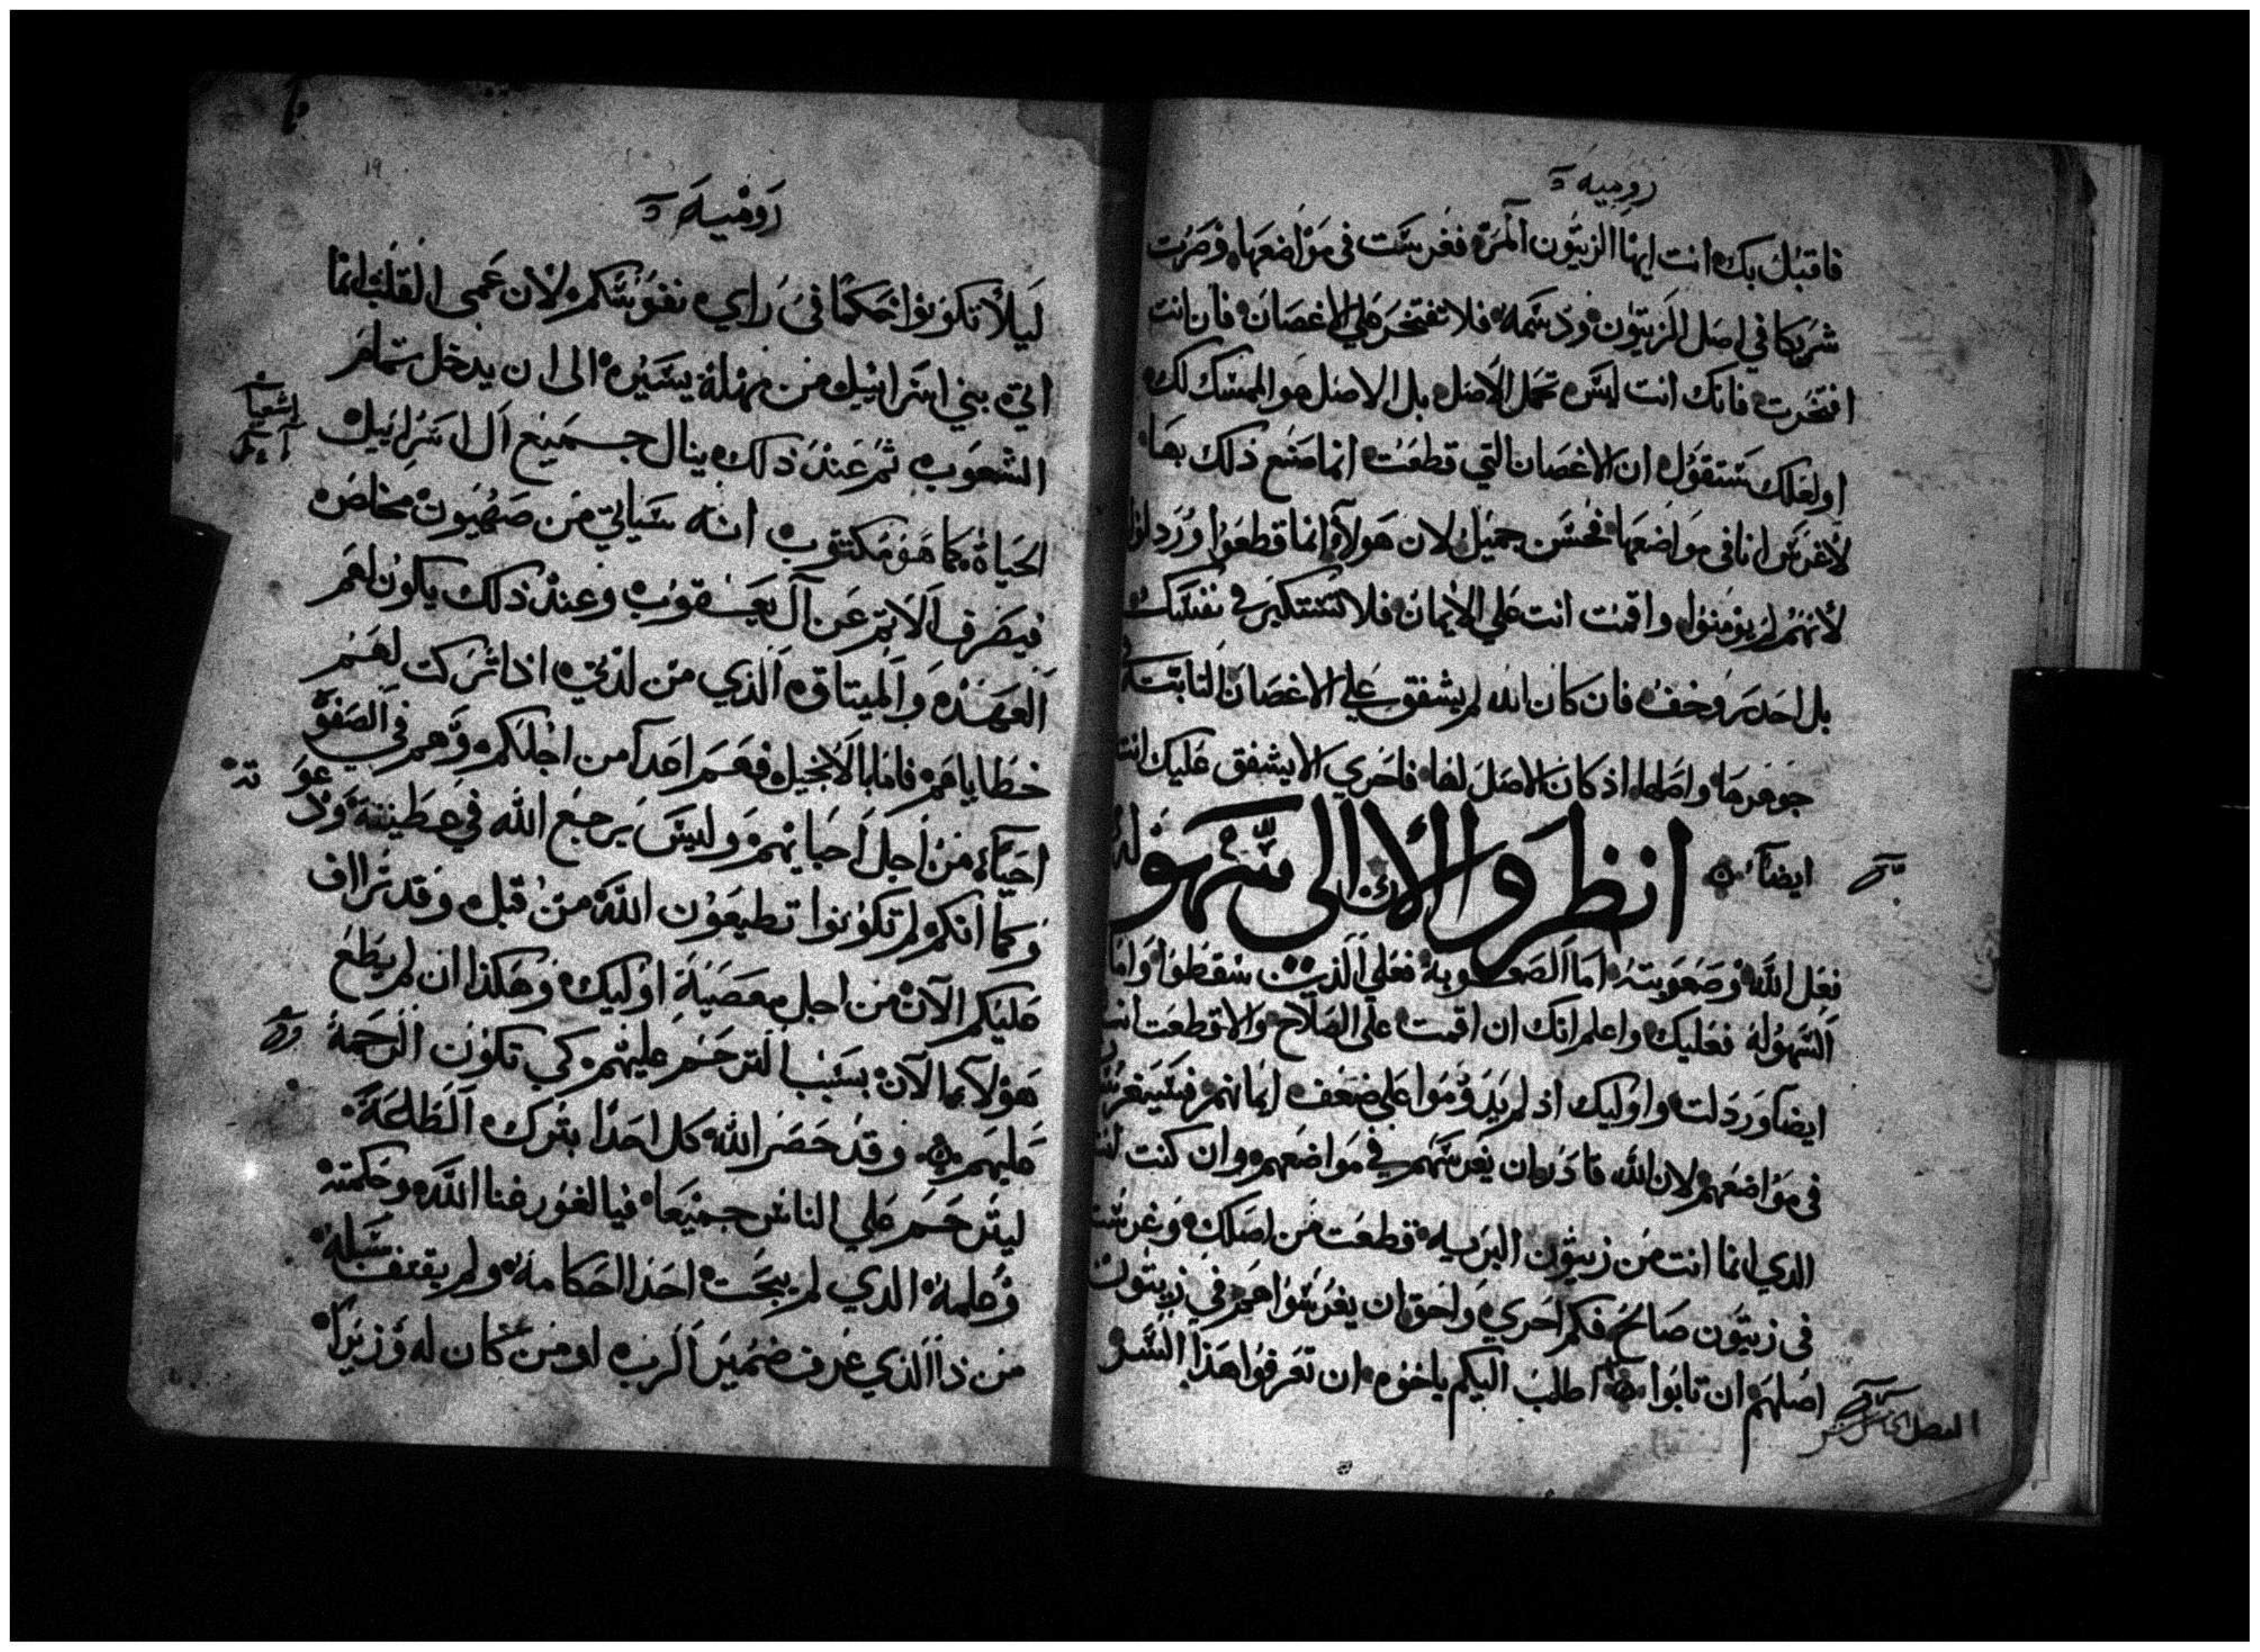 رومية
فاقبل بك انت ايها الزيتون المرة فغرست في مواضعها وصرت
شريكا في اصل الزيتون ودسمه فلا تفتخر علي الاغصان فان انت
افتخرت فانك انت ليس تحمل الاصل بل الاصل هو الممسك لك
او لعلك ستقول ان الاغصان التي قطعت انما صنع ذلك بها
لاغرس انا في مواضعها فحسن جميل لان هولاء انما قطعوا وردلوا
لانهم لم يومنوا واقمت انت علي الايمان فلا تستكبر في نفسك
بل احدر وخف فان كان الله لم يشفق علي الاغصان النابتة
جوهرها واصلها اذ كان الاصل لها فاحري الا يشفق عليك انت
ايضا انظروا الان الى سهولة
فعل الله وصعوبته اما الصعوبة فعلي الذين سقطوا واما
السهولة فعليك واعلم انك ان اقمت على الصلاح والا قطعت انت
ايضا وردلت واوليك اذ لم يدوموا علي ضعف ايمانهم فسيغرسون
في مواضعهم لان الله قادر ان يغرسهم في مواضعهم وان كنت انت
الدي انما انت من زيتون البريه قطعت من اصلك وغرست
في زيتون صالح فكم احري واحق ان يغرسوا هم في زيتون
اصلهم ان تابوا اطلب اليكم ياخوه ان تعرفوا هذا السر
الفصل الخامس عشر
رومية
19
ليلا تكونوا حكما في راي نفوسكم لان عمى القلب انما
اتي بني اسراييل من مهلة يسيره الى ان يدخل تمام
الشعوب ثم عند ذلك ينال جميع ال اسراييل
اشعيا
الحياة كما هو مكتوب انه سياتي من صهيون مخلص
فيصرف الاثم عن آل يعقوب وعند ذلك يكون لهم
العهد والميتاق الذي من لدني اذا تركت لهم
خطاياهم فاما بالانجيل فهم اعدا من اجلكم وهم في الصفوة
احباء من اجل احبايهم وليس يرجع الله في عطيته ودعوته
وكما انكم لم تكونوا تطيعون الله من قبل وقد تراف
عليكم الآن من اجل معصية اوليك وهكذا ان لم يطع
هولاء بما الآن بسبب الترحم عليهم كي تكون الرحمة
عليهم وقد حصر الله كل احدا بترك الطاعة
ليترحم علي الناس جميعا فيا لغور غنا الله وحكمته
وعلمه الدي لم يبحت احدا احكامه ولم يقتف سبله
من ذا الذي عرف ضمير الرب او من كان له وزيرا